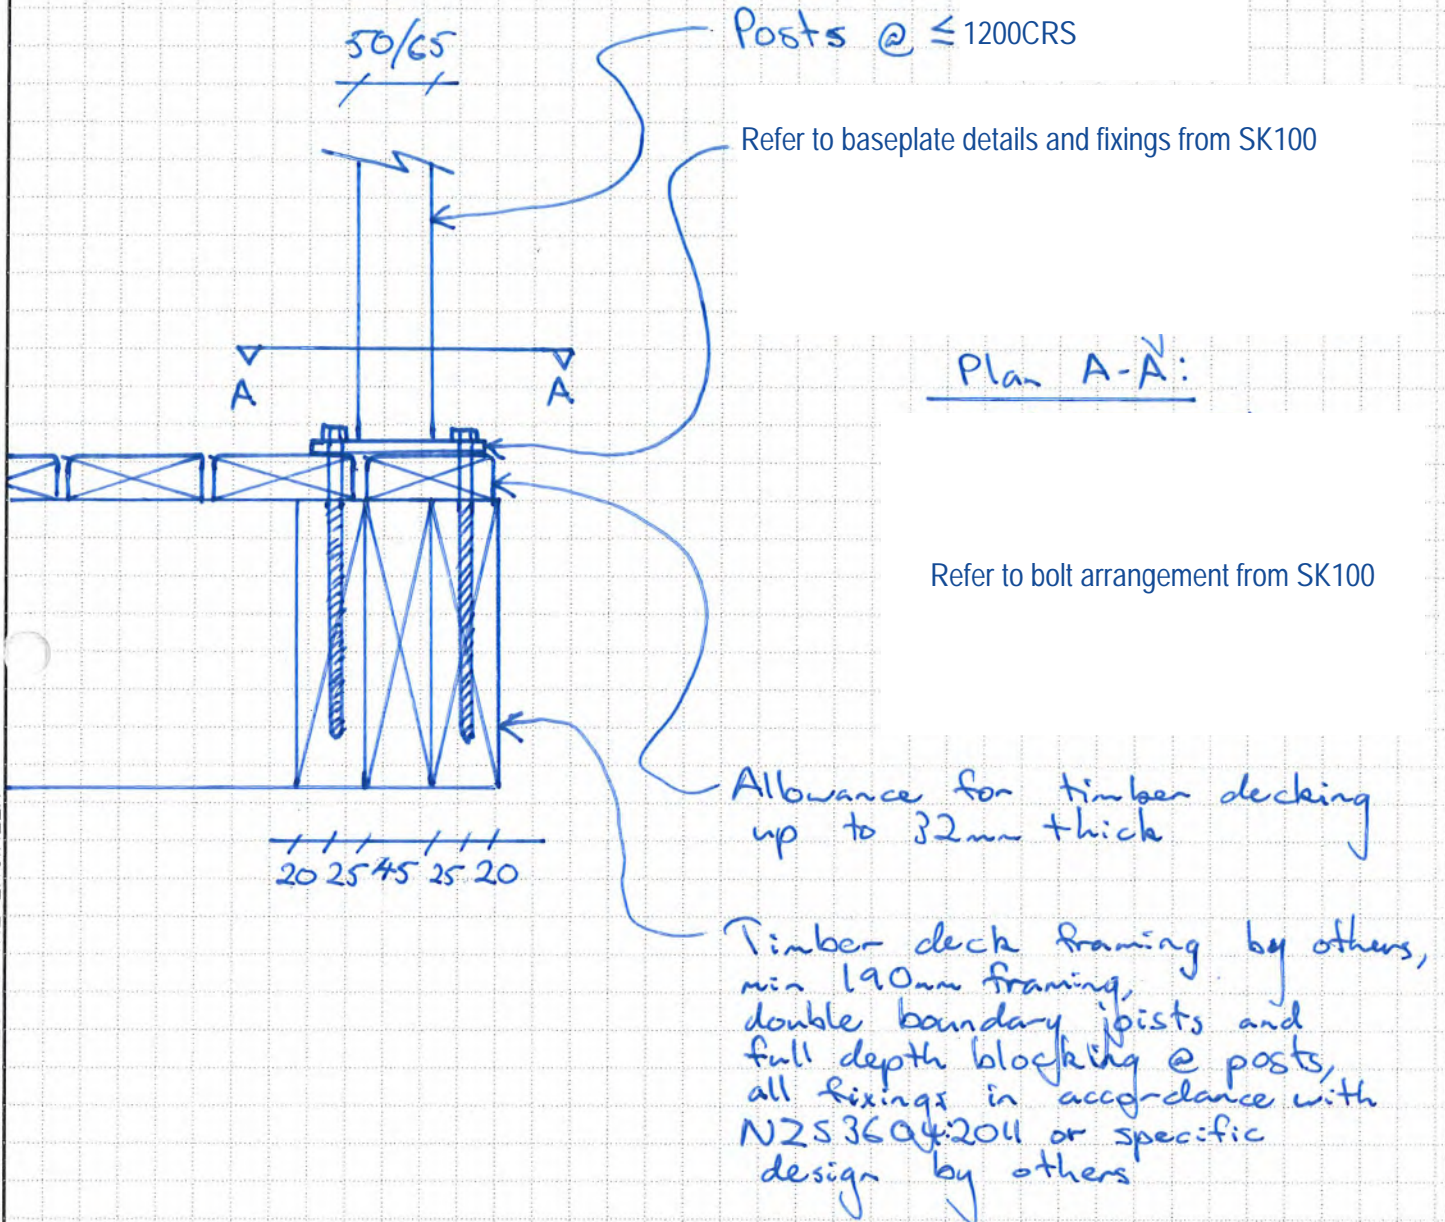 50/65
Posts @ ≤ 1200CRS
Refer to baseplate details and fixings from SK100
A A
Plan A-A:
Refer to bolt arrangement from SK100
Allowance for timber decking
up to 32mm thick
20 25 45 25 20
Timber deck framing by others,
min 190mm framing,
double boundary joists and
full depth blocking @ posts,
all fixings in accordance with
NZS3604:2011 or specific
design by others